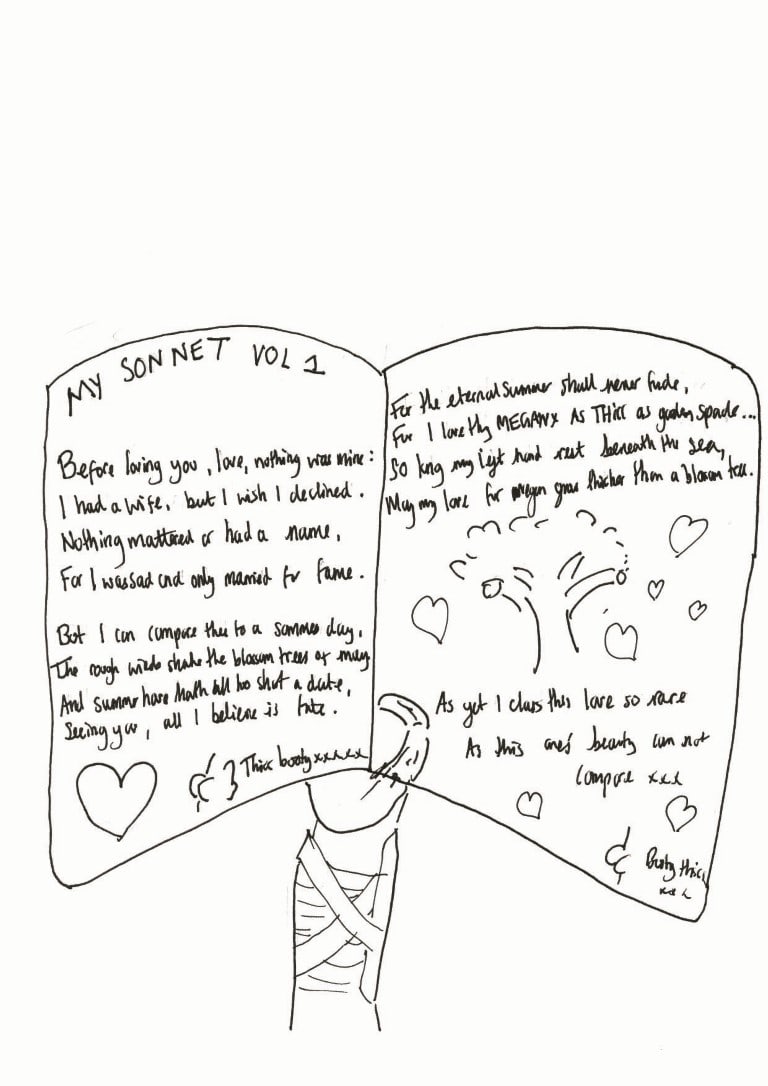 MY SONNET VOL 1
Before loving you, love, nothing was mine:
I had a wife, but I wish I declined.
Nothing mattered or had a name,
For I was sad and only married for fame.
But I can compare thee to a summer day,
The rough winds shake the blossom trees of may
And summer hath all too short a date,
Seeing you, all I believe is fate.
Thicc booty xxxxx
For the eternal summer shall never fade,
For I love thy MEGANX AS THICC as garden spade...
So long my left hand rest beneath the sea,
May my love for megan grow thicker than a blossom tree.
As yet I class this love so rare
As this one's beauty can not
compare xxx
Booty thicc
xxx